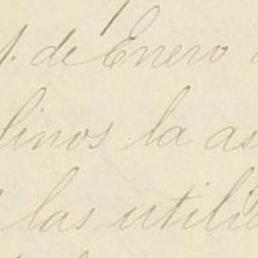 1. de Enero
linos la as
las utili